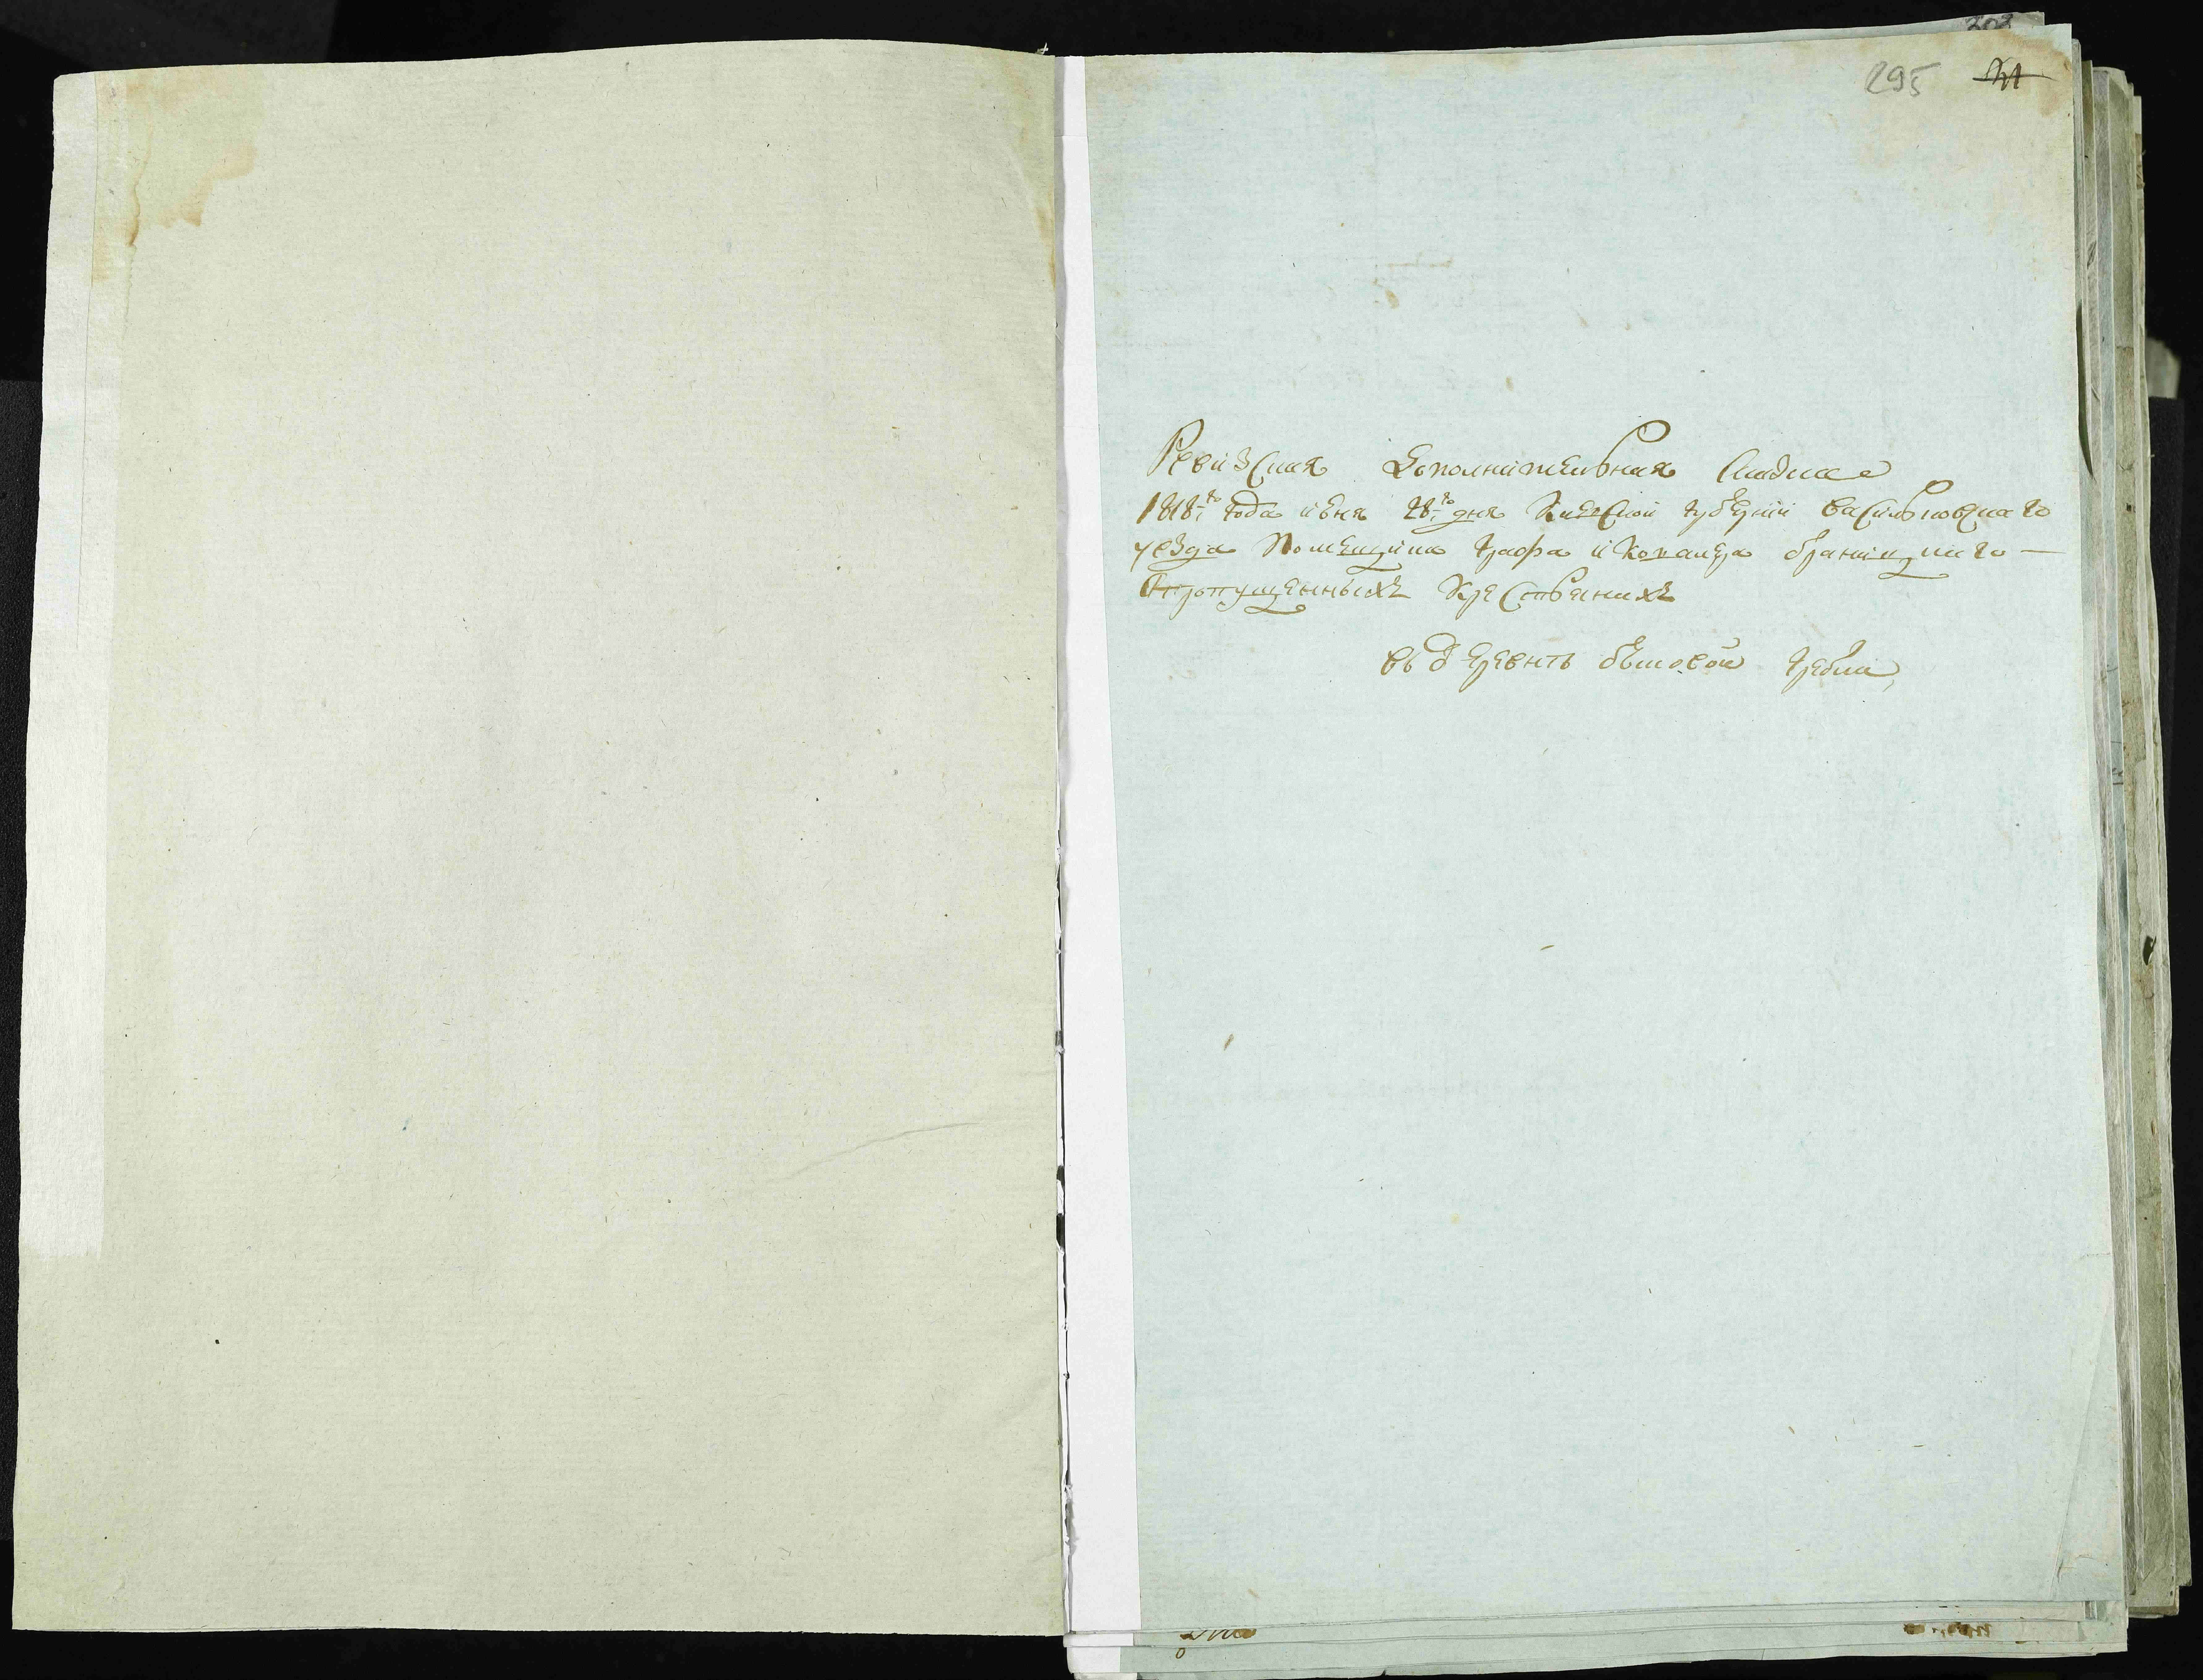 295 21
Ревизская дополнительная Сказка
1818го года июня 28го дня Киевской губернии васильковскаго
уезда Помещика графа и Кавалера браницкаго —
О пропущенныхъ Крестьянихъ
въ деревнѣ быковой гребли